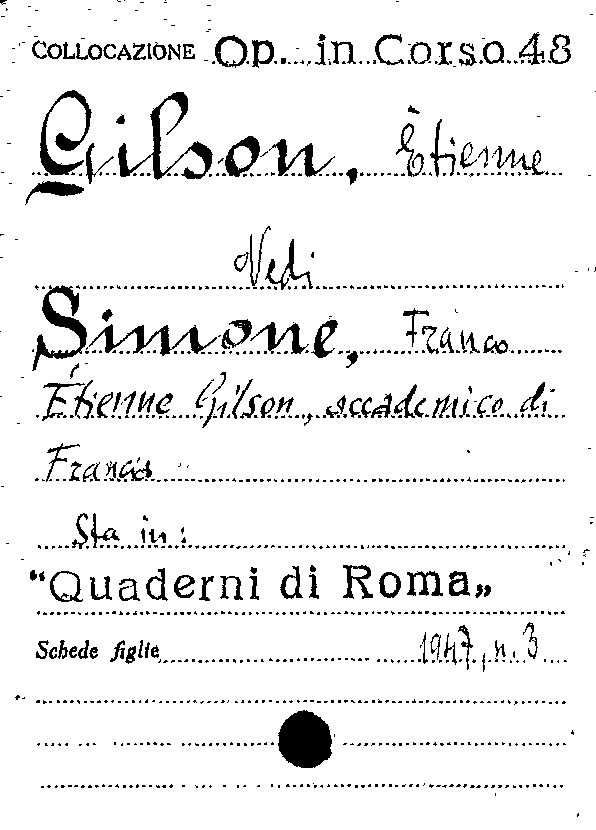 COLLOCAZIONE Op. in Corso 48
Gilson, Étienne
Vedi
Simone, Franco
Étienne Gilson, accademico di
Francia
Sta in:
"Quaderni di Roma"
Schede figlie 1947, n. 3